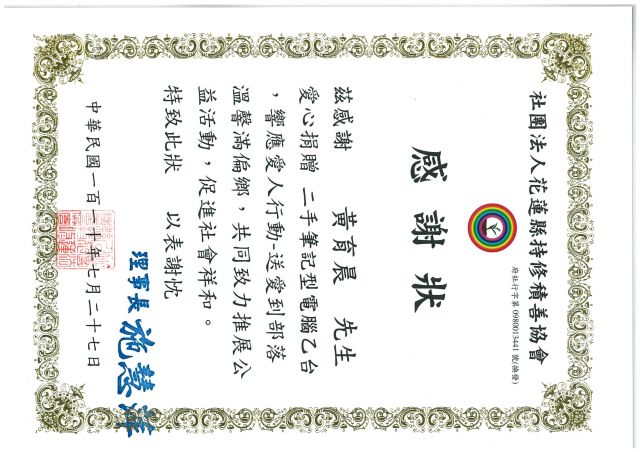 社團法人花蓮縣持修積善協會
府社行字第0980013441號(換發)
感謝狀
茲感謝 黃育晨 先生
愛心捐贈 二手筆記型電腦乙台
，響應愛人行動-送愛到部落
溫馨滿偏鄉，共同致力推展公
益活動，促進社會祥和。
特致此狀 以表謝忱
理事長 施慧
中華民國一百一十年七月二十七日